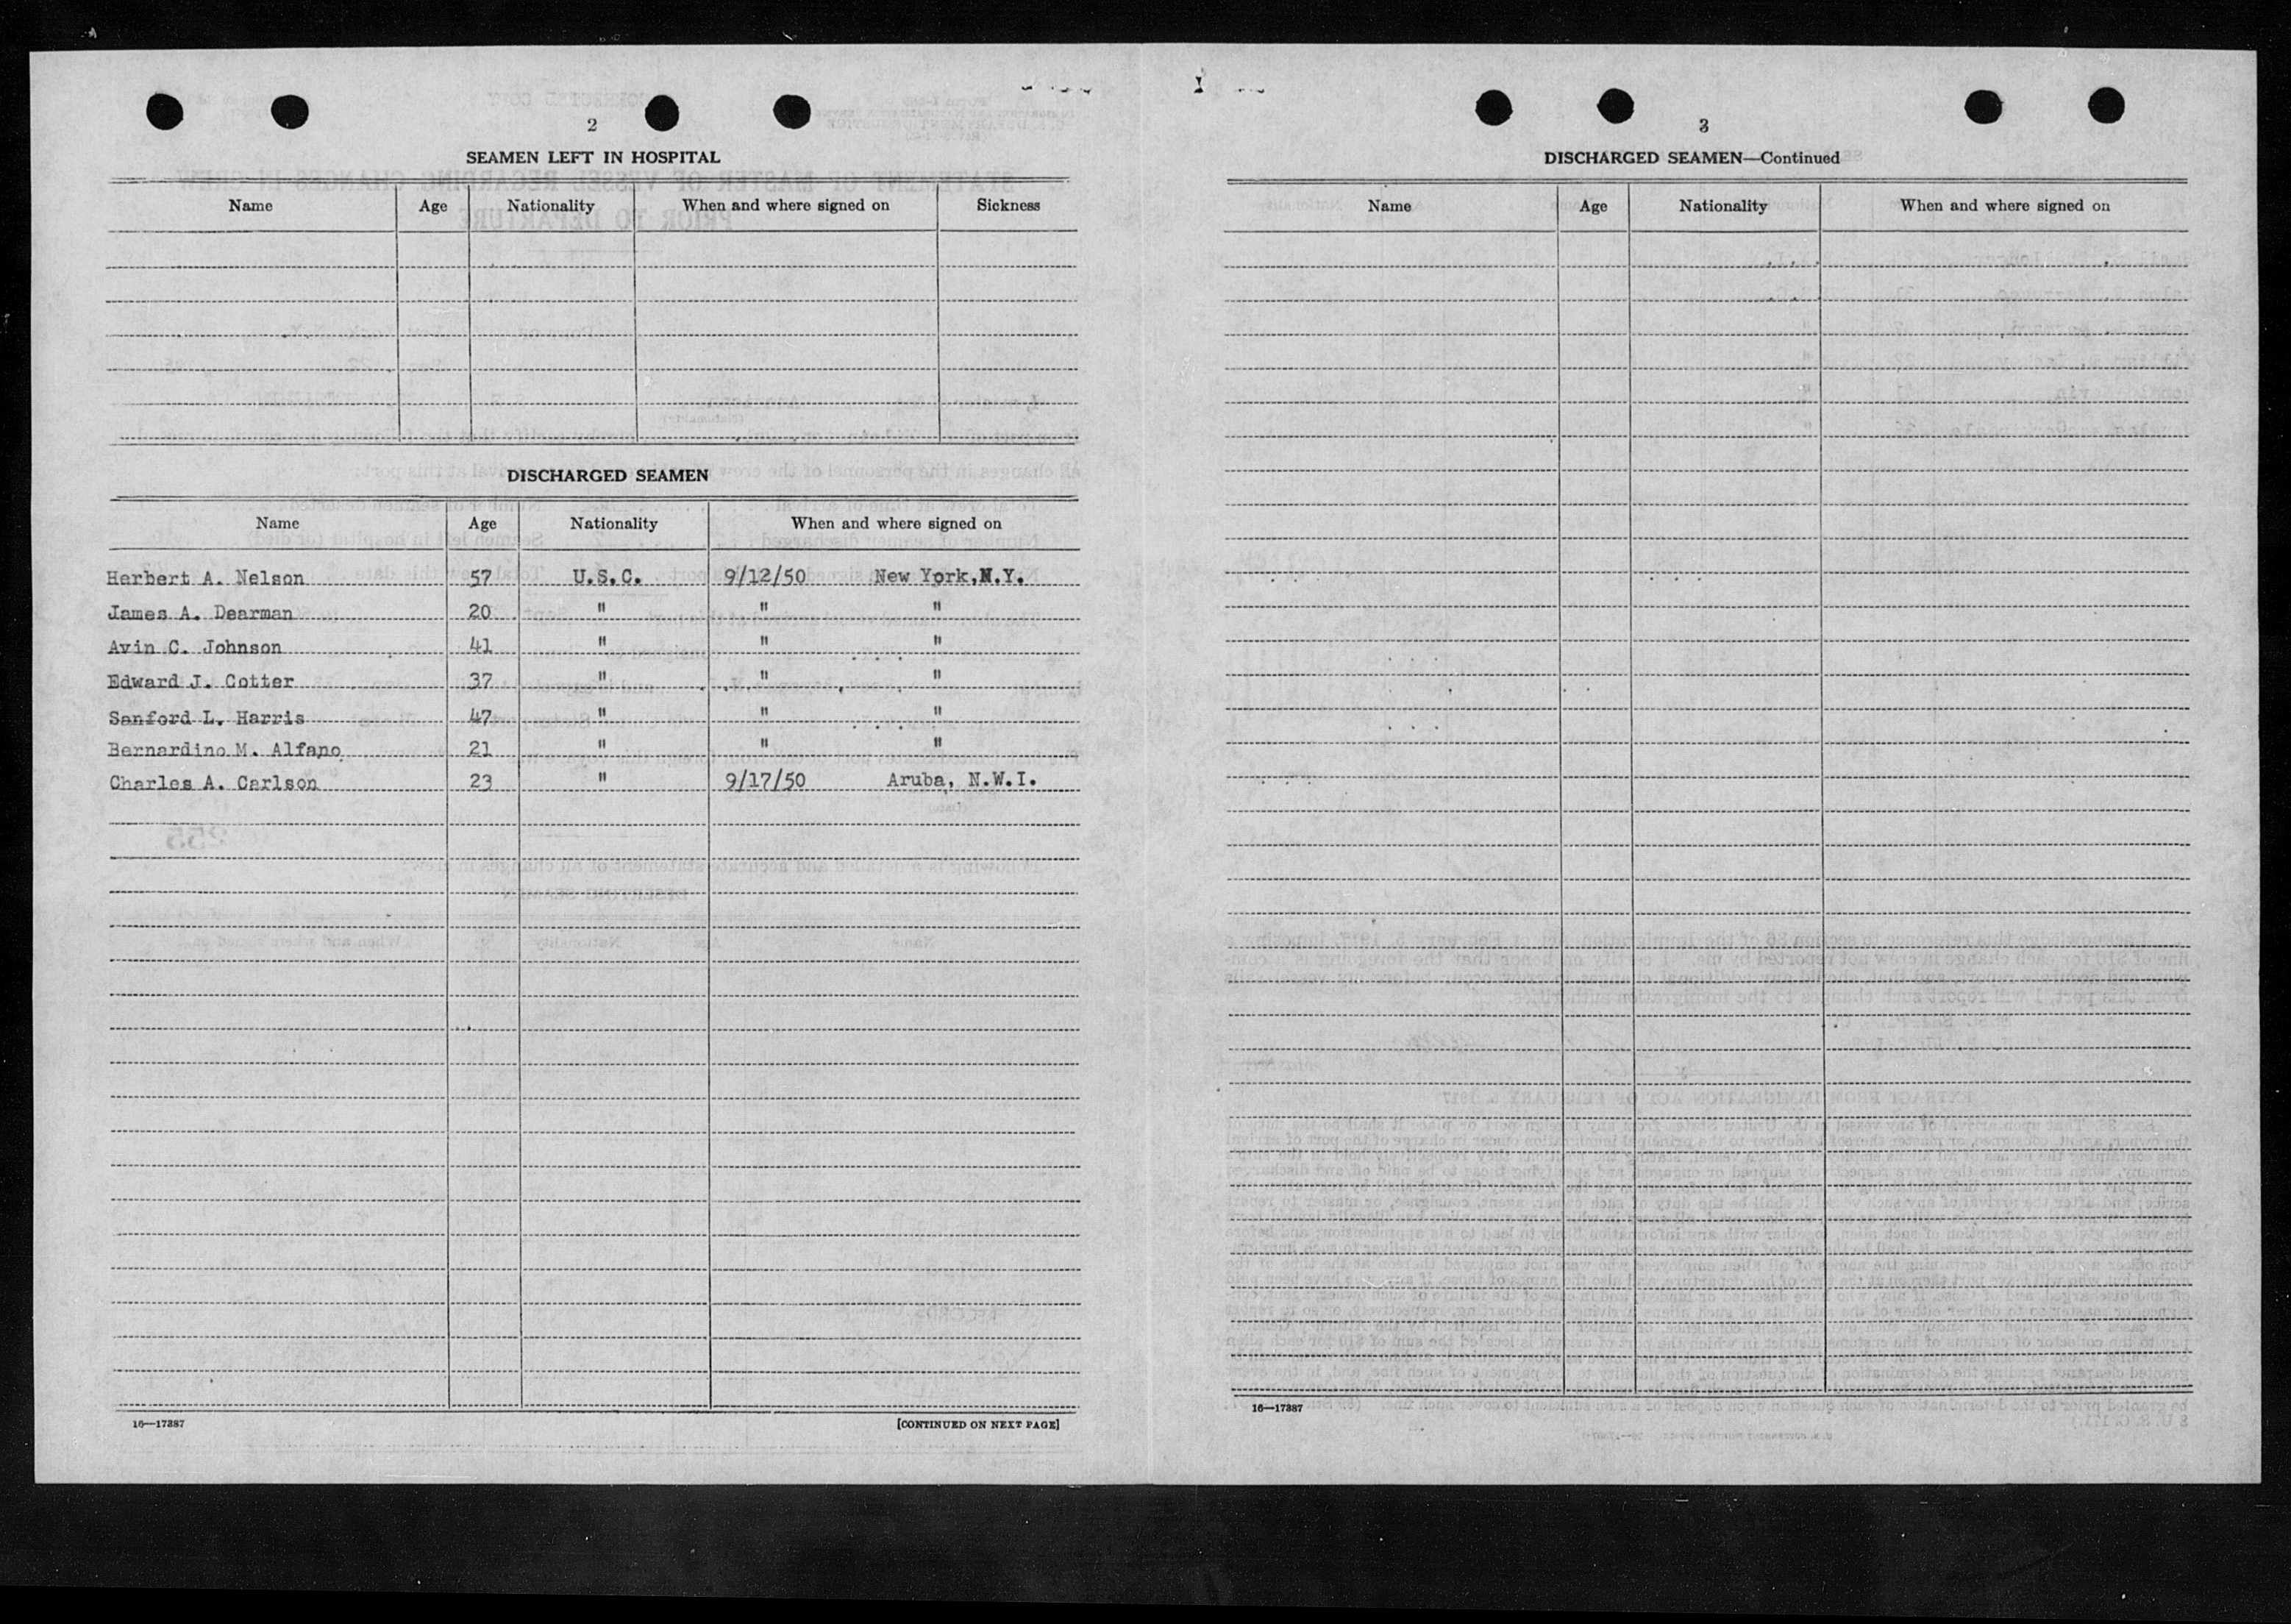 2
SEAMEN LEFT IN HOSPITAL
Name Age Nationality When and where signed on Sickness
DISCHARGED SEAMEN
Name Age Nationality When and where signed on
Herbert A. Nelson 57 U.S.C. 9/12/50 New York,N.Y.
James A. Dearman 20 " " "
Avin C. Johnson 41 " " "
Edward J. Cotter 37 " " "
Sanford L. Harris 47 " " "
Bernardino M. Alfano 21 " " "
Charles A. Carlson 23 " 9/17/50 Aruba, N.W.I.
16—17387 [CONTINUED ON NEXT PAGE]
3
DISCHARGED SEAMEN—Continued
Name Age Nationality When and where signed on
16—17387